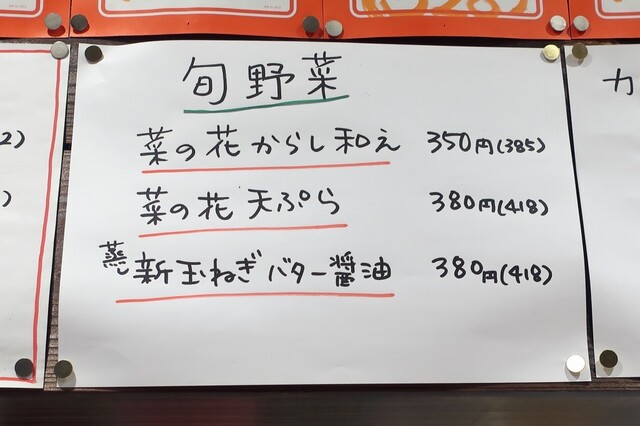 旬野菜
菜の花からし和え 350円(385)
菜の花天ぷら 380円(418)
蒸し新玉ねぎバター醤油 380円(418)
2)
)
カ